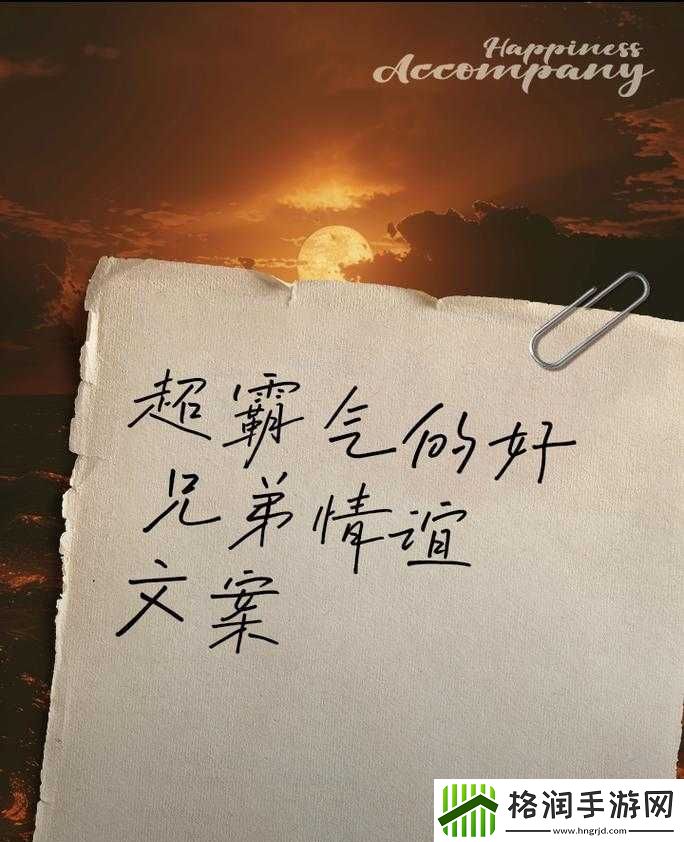 Happiness
Accompany
超霸气的好
兄弟情谊
文案
格润手游网
www.hngrjd.com